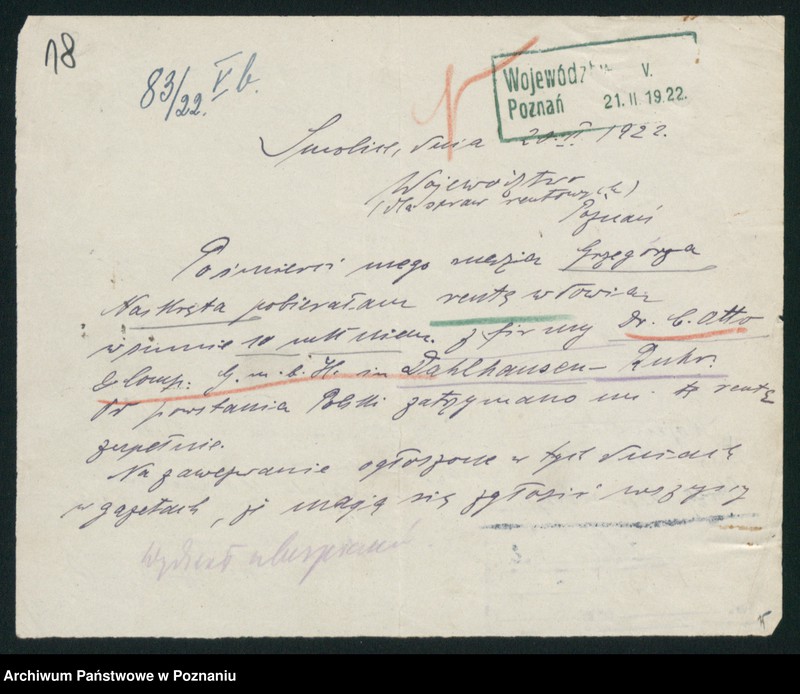 18
83/22. V b.
Województwo V.
Poznań 21. II 1922.
Smolice, dnia 20 II 1922.
Województwo
(dla spraw rentowych)
Poznań
Po śmierci mego męża Grzegórza
Naskręta pobierałam rentę wdowią
w sumie 10 mk niem. z firmy Dr. C. Otto
& Comp. G. m. b. H. in Dahlhausen-Ruhr.
Od powstania Polski zatrzymano mi tę rentę
zupełnie.
Na zawezwanie ogłoszone w tych dniach
w gazetach, że mają się zgłosić wszyscy
Wydział ubezpieczeń
Archiwum Państwowe w Poznaniu